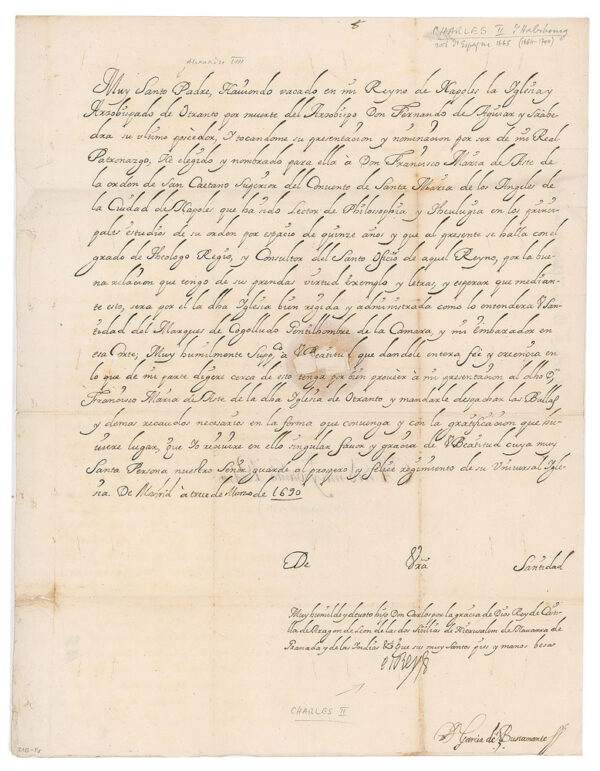 CHARLES II d'Habsbourg
roi d'Espagne 1665 (1661-1700)
Alexandre VIII
Muy Santo Padre, Haviendo vacado en mi Reyno de Napoles la Iglesia y
Arzobispado de Otranto por muerte del Arzobispo Don Fernando de Aguilar y Saabe-
dra su ultimo posedor, y tocandome su presentacion y nominacion por ser de mi Real
Patronazgo, He elegido y nombrado para ella à Don Francisco Maria de Aste de
la orden de San Caetano Superior del Conuento de Santa Maria de los Angeles de
la Ciudad de Napoles que ha sido Lector de Philosophia y Theulugia en los prinsi-
pales estudios de su orden por espacio de quinze años y que al presente se halla con el
grado de Theologo Regio, y Consultor del Santo oficio de aquel Reyno, por la bue-
na relacion que tengo de sus prendas virtud exemplo y letras, y esperar que median-
te esto, sera por el la dha Iglesia bien regida y administrada como lo entendera V San-
tidad del Marques de Cogolludo Gentilhombre de la Camara, y mi Embaxador en
esa Corte; Muy humilmente Suppco à V Beatitud que dandole entera fee y creencia en
lo que de mi parte digere cerca de esto tenga por bien proveer à mi presentacion al dho Dn
Francisco Maria de Aste de la dha Iglesia de Otranto y mandarle despachar las Bullas
y demas recaudos necesarios en la forma que convenga y con la gratificacion que hu-
viere lugar, que Yo recivire en ello singular favor y gracia de V Beatitud cuya muy
Santa Persona nuestro Señor guarde al prospero y felice regimiento de su Universal Igle-
sia. De Madrid à trece de Marzo de 1690
De Vra Santidad
Muy humilde y devoto hijo Don Carlos por la gracia de Dios Rey de Casti-
lla de Aragon de Leon de las dos Sicilias de Hierusalem de Navarra de
Granada y de las Indias & que sus muy Santos pies y manos besa
El Rey
CHARLES II
Dn Garcia de Bustamante